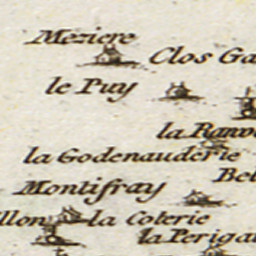 Meziere
Clos Ga
le Puy
la Godenauderie
Bel
Montifray
llon
la Coterie
la Periga